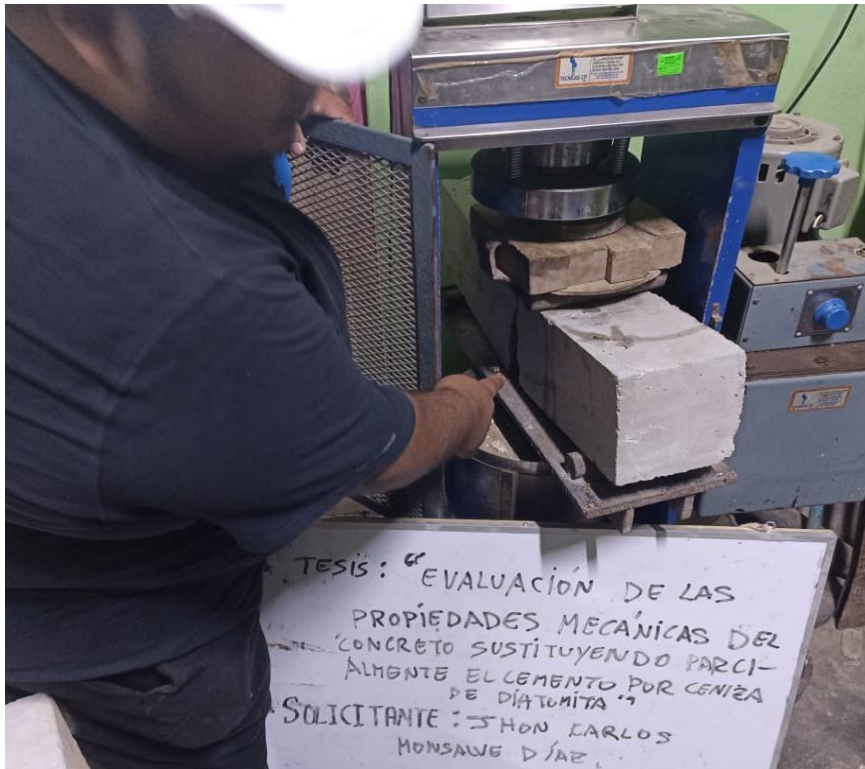 TESIS: "EVALUACIÓN DE LAS
PROPIEDADES MECÁNICAS DEL
CONCRETO SUSTITUYENDO PARCI-
ALMENTE EL CEMENTO POR CENIZA
DE DIATOMITA"
SOLICITANTE: JHON CARLOS
MONSALVE DÍAZ.